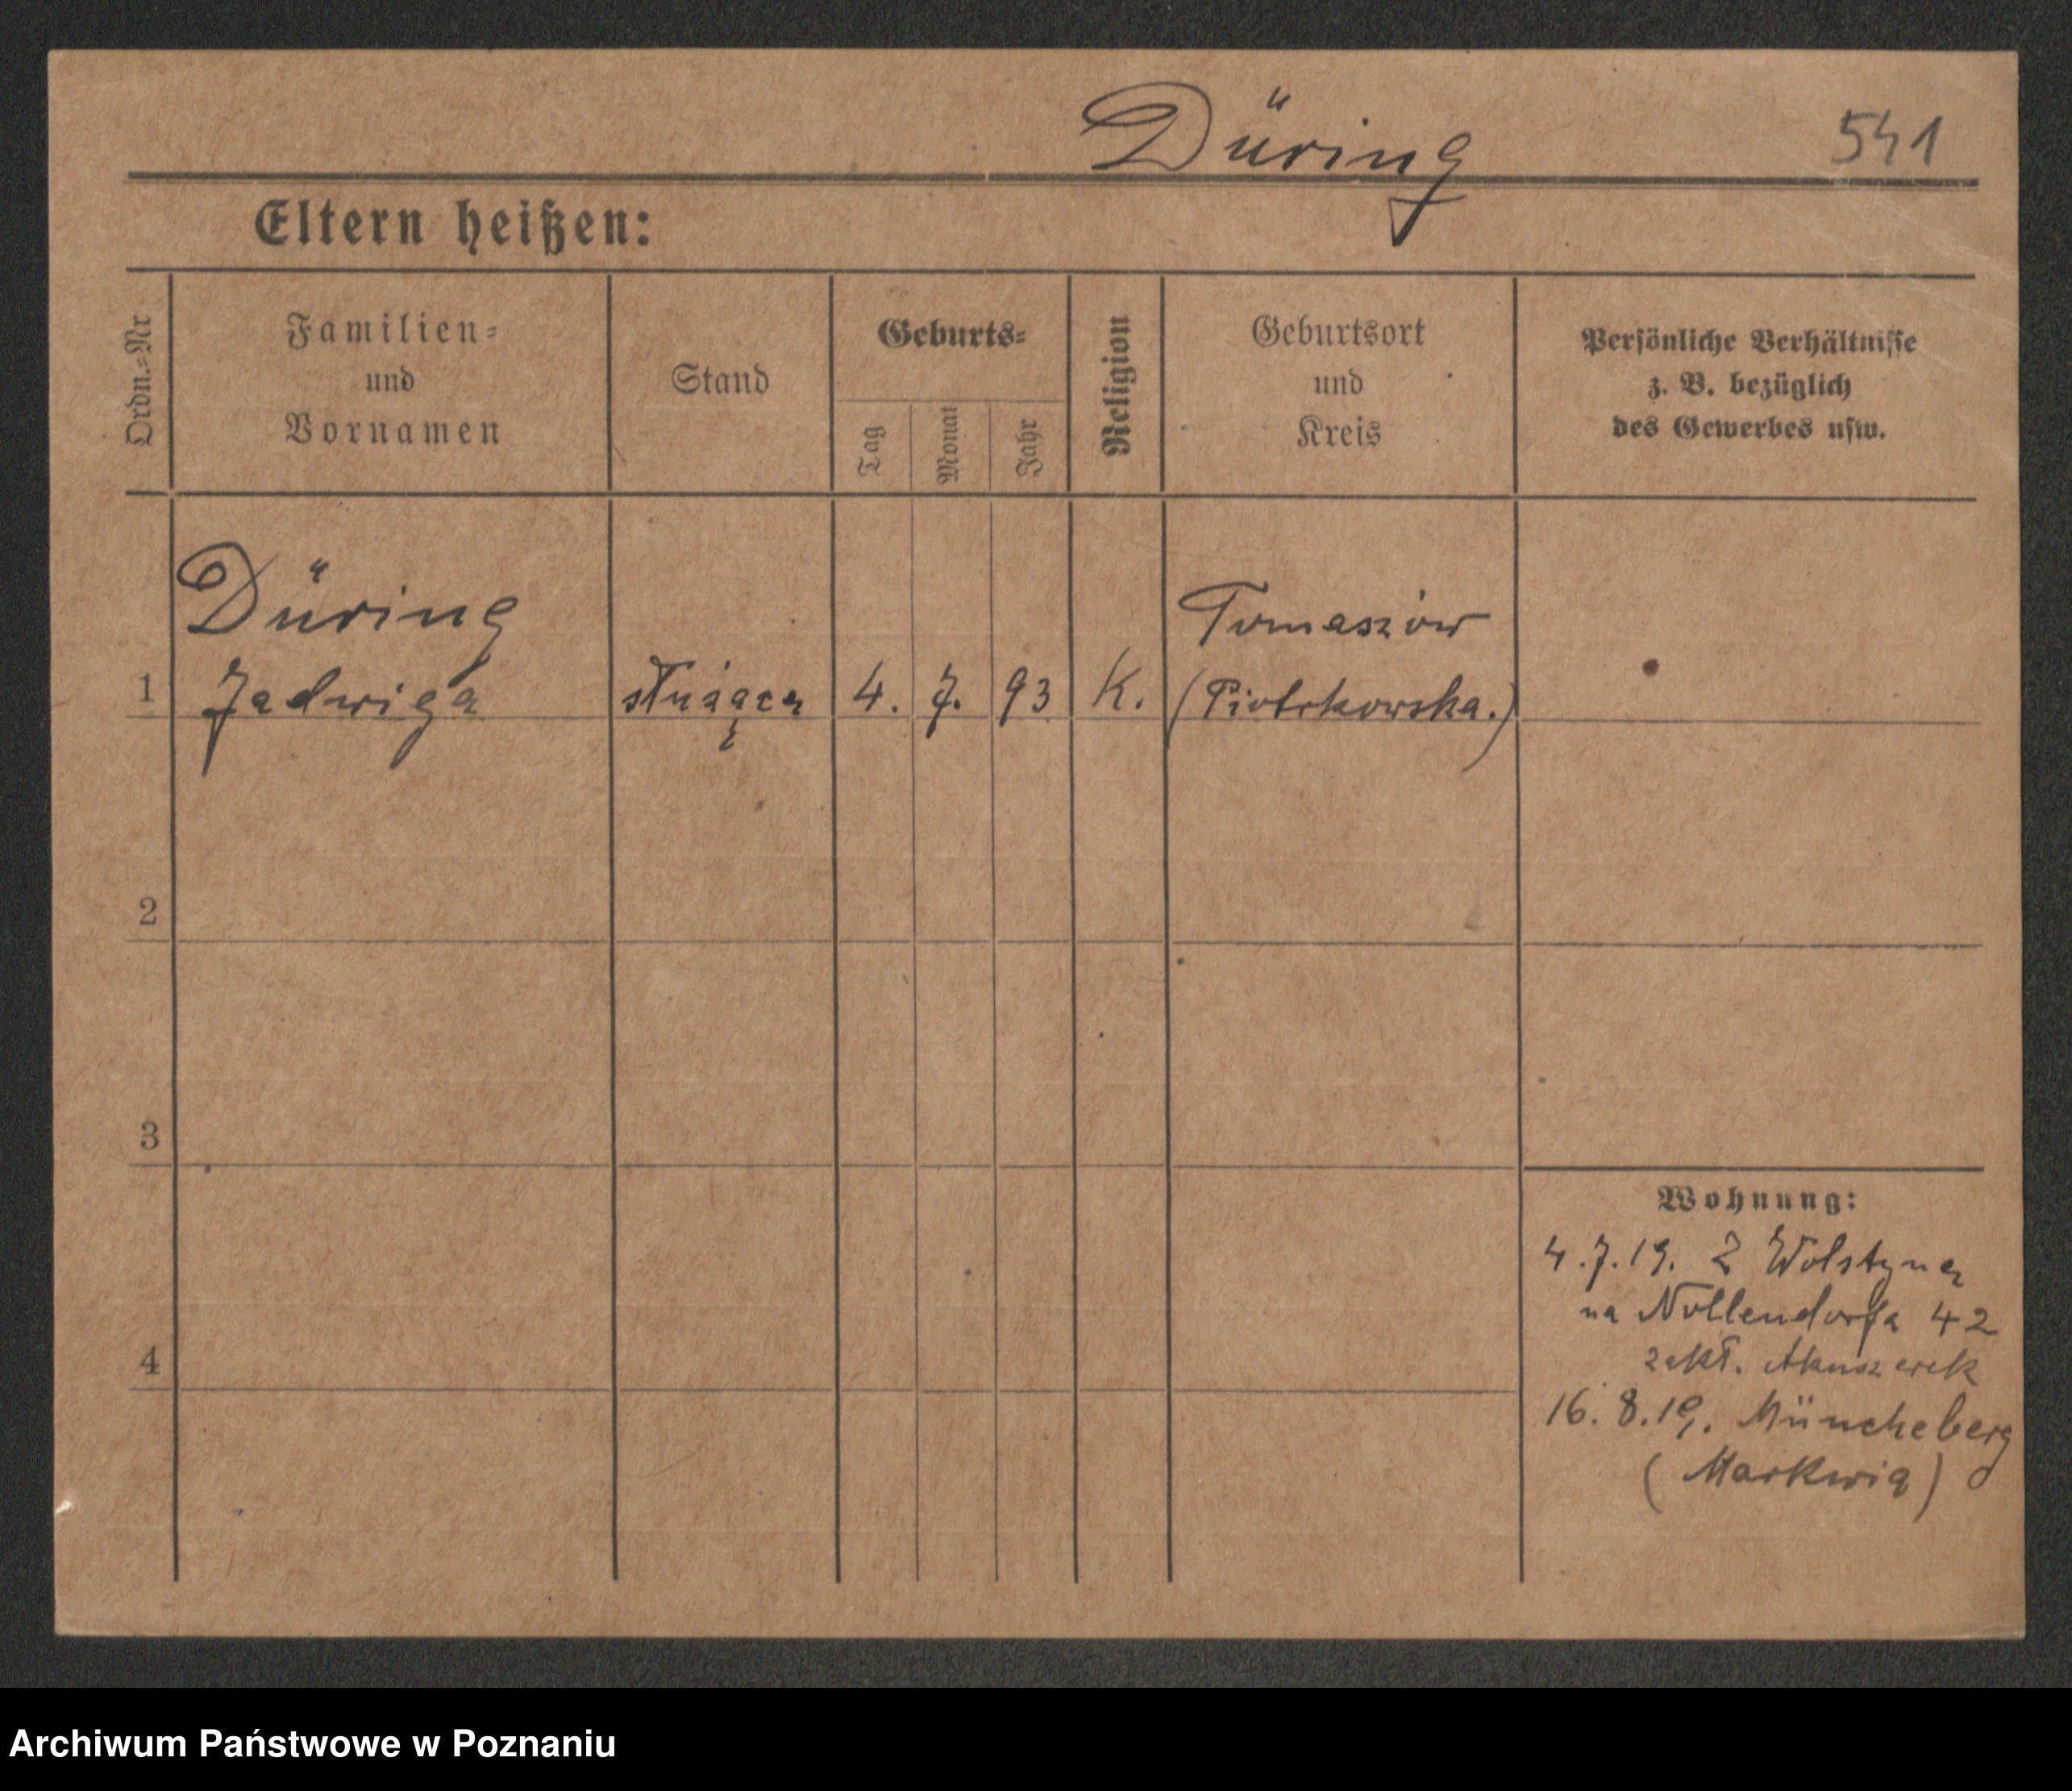 Düring 541
Eltern heißen:
Ordn.=Nr
Familien=
und
Vornamen
Stand
Geburts=
Tag
Monat
Jahr
Religion
Geburtsort
und
Kreis
Persönliche Verhältnisse
z. B. bezüglich
des Gewerbes usw.
Düring Tomaszów
1 Jadwiga służąca 4. 7. 93 K. (Piotrkowska.)
2
3
4
Wohnung:
4.7.19. Z Wolstyna
na Nollendorfa 42
zakł. Akuszerek
16.8.19. Müncheberg
(Markwia)
Archiwum Państwowe w Poznaniu